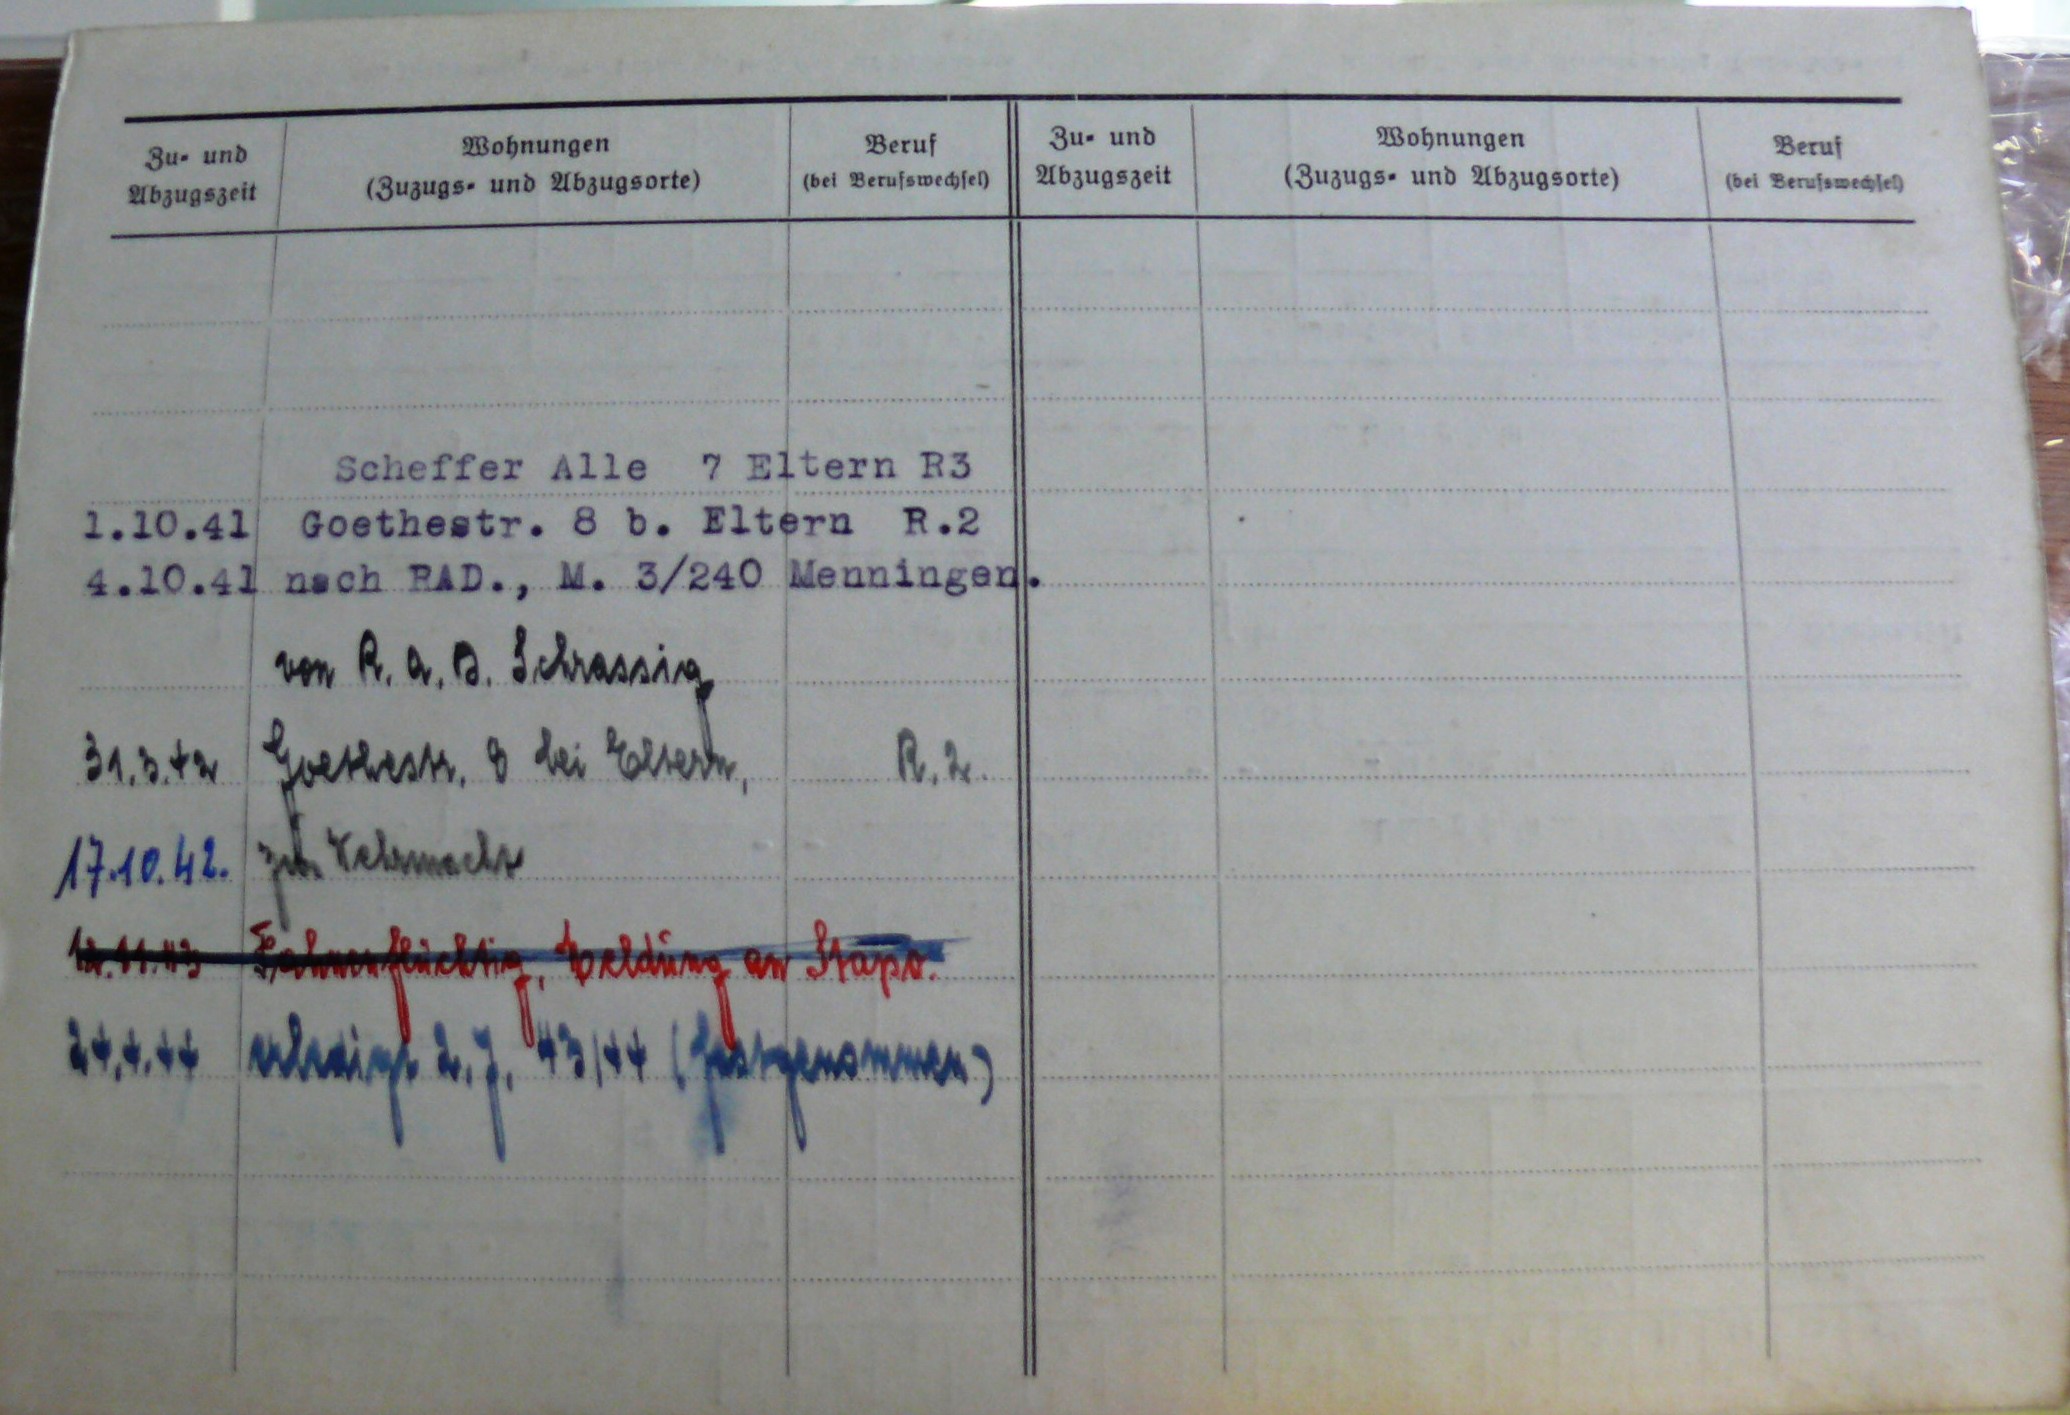 Zu- und Abzugszeit
Wohnungen
(Zuzugs- und Abzugsorte)
Beruf
(bei Berufswechsel)
Zu- und Abzugszeit
Wohnungen
(Zuzugs- und Abzugsorte)
Beruf
(bei Berufswechsel)
Scheffer Alle 7 Eltern R3
1.10.41 Goethestr. 8 b. Eltern R.2
4.10.41 nach RAD., M. 3/240 Menningen.
von R. A. D. Schrassig
31.3.42 Goethestr. 8 bei Eltern, R. 2.
17.10.42. zur Wehrmacht
11.43 Fahnenflüchtig, Meldung an Stapo.
24.4.44 erledigt 2. J. 43/44 (festgenommen)